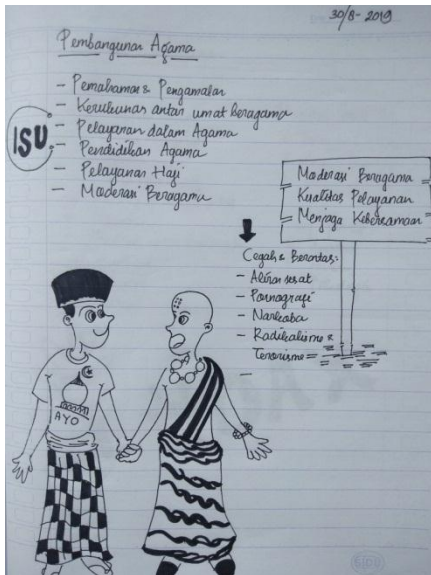 30/8-2019
Pembangunan Agama
- Pemahaman & Pengamalan
- Kerukunan antar umat beragama
- Pelayanan dalam Agama
- Pendidikan Agama
- Pelayanan Haji
- Moderasi Beragama
ISU
Moderasi Beragama
Kualitas Pelayanan
Menjaga Kebersamaan
Cegah & Berantas:
- Aliran sesat
- Pornografi
- Narkoba
- Radikalisme &
Terorisme
-
AYO